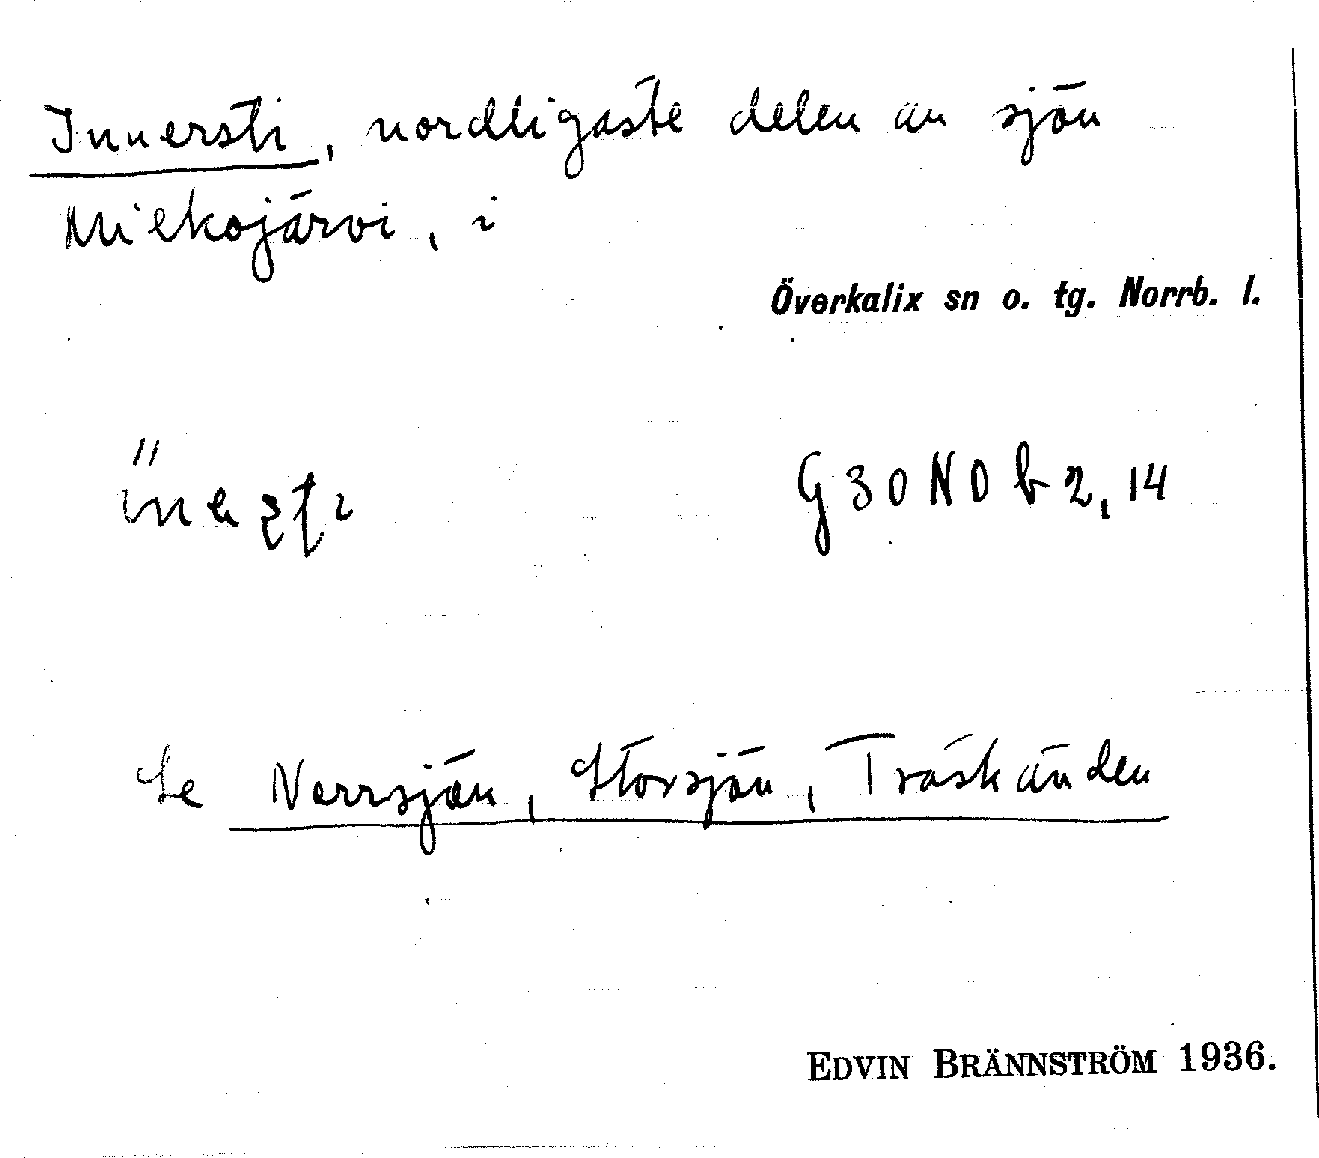 Innersti, nordligaste delen av sjön
Miekojärvi, i
Överkalix sn o. tg. Norrb. l.
G 30 NO b 2, 14
Se Norrsjön, Storsjön, Träskänden
EDVIN BRÄNNSTRÖM 1936.